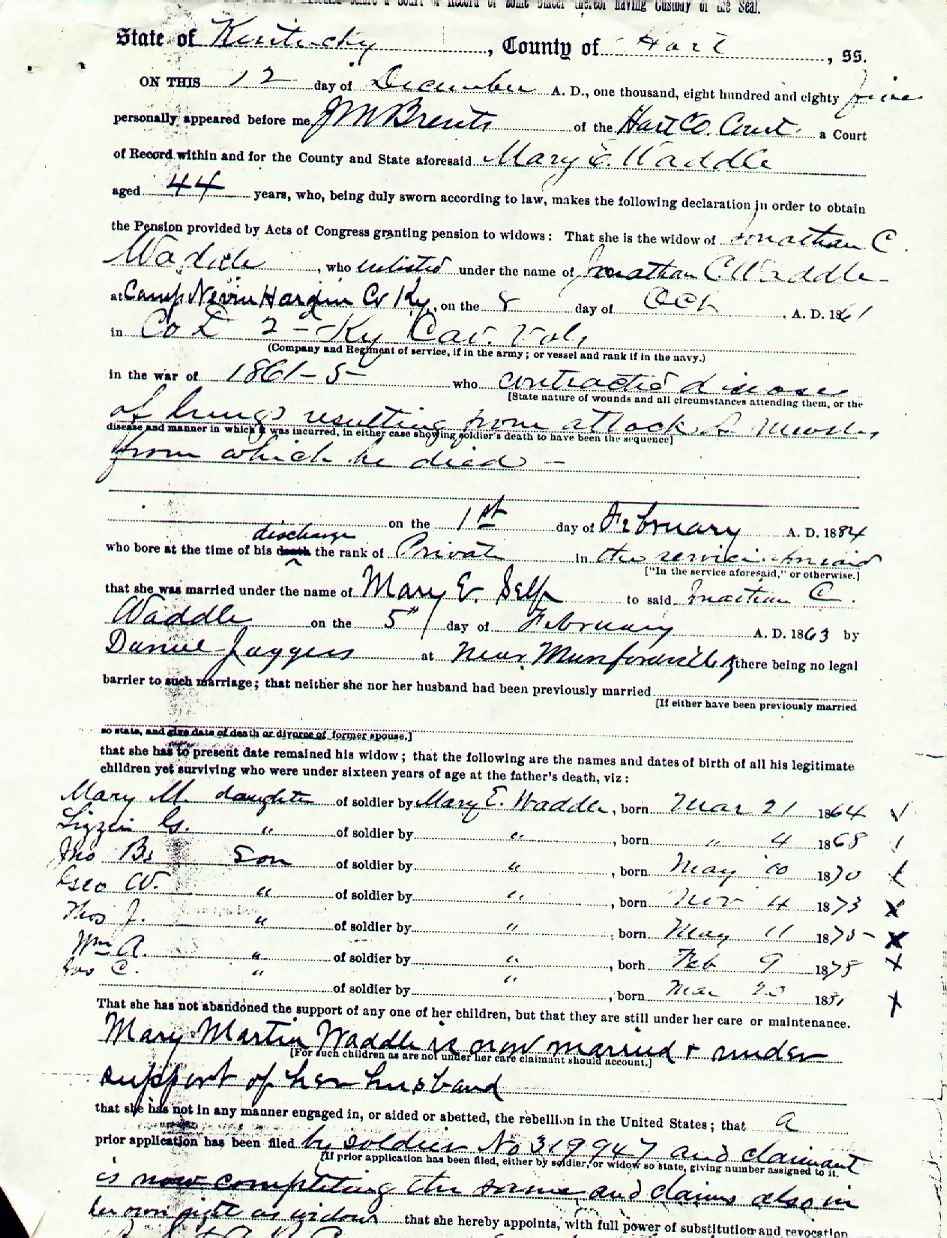 State of Kentucky, County of Hart, ss.
ON THIS 12 day of December A. D., one thousand, eight hundred and eighty nine
personally appeared before me JM Brents of the Hart Co. Court a Court
of Record within and for the County and State aforesaid Mary E. Waddle
aged 44 years, who, being duly sworn according to law, makes the following declaration in order to obtain
the Pension provided by Acts of Congress granting pension to widows: That she is the widow of Jonathan C.
Waddle, who enlisted under the name of Jonathan C Waddle
at Camp Nevin Hardin Co Ky, on the 8 day of Oct, A. D. 1861
in Co L 2 - Ky Cav. Vols
(Company and Regiment of service, if in the army; or vessel and rank if in the navy.)
in the war of 1861-5 who contracted disease
[State nature of wounds and all circumstances attending them, or the
of lungs resulting from attack of Measles
disease and manner in which it was incurred, in either case showing soldier's death to have been the sequence]
from which he died -
on the 1st day of February A. D. 1884
discharge
who bore at the time of his death the rank of Private in the service aforesaid
["In the service aforesaid," or otherwise.]
that she was married under the name of Mary E. Self to said Jonathan C.
Waddle on the 5" day of February A. D. 1863 by
Daniel Jaggers at Near Munfordville, there being no legal
barrier to such marriage; that neither she nor her husband had been previously married
[If either have been previously married
so state, and give date of death or divorce of former spouse.]
that she has to present date remained his widow; that the following are the names and dates of birth of all his legitimate
children yet surviving who were under sixteen years of age at the father's death, viz:
Mary M. daughter of soldier by Mary E. Waddle, born Mar 21 1864
Lizzie G. " of soldier by ", born " 4 1868
Jno B. Son of soldier by ", born May 10 1870
Geo W. " of soldier by ", born Nov 4 1873
Thos J. " of soldier by ", born May 11 1875
Wm A. " of soldier by ", born Feb 9 1878
Jas C. " of soldier by ", born Mar 1881
That she has not abandoned the support of any one of her children, but that they are still under her care or maintenance.
Mary Martin Waddle is now married & under
[For such children as are not under her care claimant should account.]
support of her husband
that she has not in any manner engaged in, or aided or abetted, the rebellion in the United States; that a
prior application has been filed by soldier No 319947 and claimant
[If prior application has been filed, either by soldier, or widow so state, giving number assigned to it.
is now completing the same and claims also in
her own right as widow that she hereby appoints, with full power of substitution and revocation